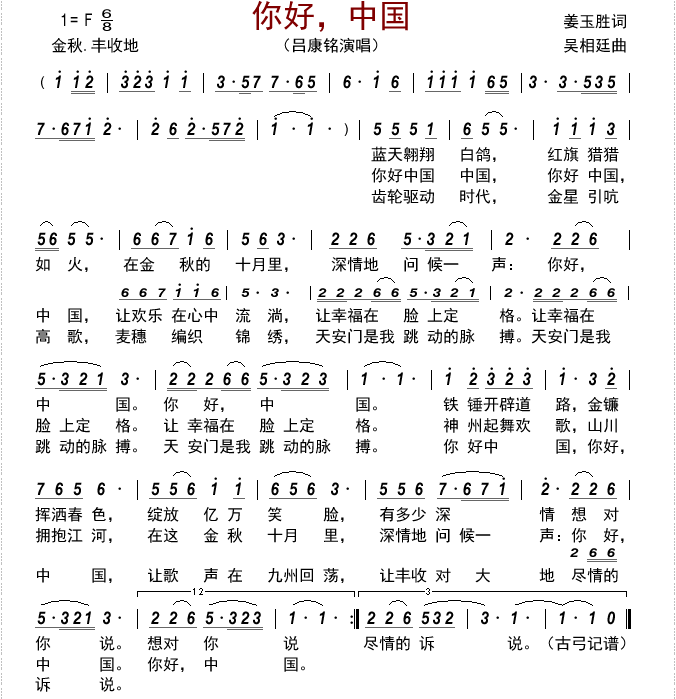 你好，中国
1= F 6/8
姜玉胜词
金秋.丰收地
（吕康铭演唱）
吴相廷曲
( 1 12 | 323 1 1 | 3·57 7·65 | 6· 1· | 111 1 65 | 3· 3·535 |
7·671 2· | 2 6 2·572 | 1· 1· ) | 5 5 5 1 | 6 5 5· | 1 1 1 3 |
蓝天翱翔 白鸽， 红旗 猎猎
你好中国 中国， 你好 中国，
齿轮驱动 时代， 金星 引吭
56 5 5· | 6 6 7 1 6 | 5 6 3· | 2 2 6 5·321 | 2· 2 2 6 |
如 火， 在金 秋的 十月里， 深情地 问 候一 声： 你好，
6 6 7 1 1 6 | 5· 3· | 2 2 2 6 6 5·3 2 1 | 2· 2 2 6 6
中 国， 让欢乐 在心中 流 淌， 让幸福在 脸 上定 格。让幸福在
高 歌， 麦穗 编织 锦 绣， 天安门是我 跳 动的脉 搏。天安门是我
5·321 3· | 2 2 2 6 6 5·323 | 1· 1· | 1 2 323 | 1· 3 2 |
中 国。 你 好， 中 国。 铁 锤开辟道 路，金镰
脸 上定 格。让 幸福在 脸 上定 格。 神 州起舞欢 歌，山川
跳 动的脉 搏。天 安门是我 跳 动的脉 搏。 你 好中 国，你好，
7 6 5 6· | 5 5 6 1 1 | 6 5 6 3· | 5 5 6 7·671 | 2· 2 2 6 |
挥洒春 色， 绽放 亿 万 笑 脸， 有多少 深 情 想 对
拥抱江 河， 在这 金 秋 十月 里， 深情地 问 候一 声：你 好，
2 6 6
中 国， 让歌 声 在 九州回 荡，让丰收 对 大 地 尽情的
12
3
5·321 3· | 2 2 6 5·323 | 1· 1· :| 2 2 6 532 | 3· 1· | 1· 1 0 ‖
你 说。 想对 你 说 尽情的 诉 说。（古弓记谱）
中 国。 你好，中 国。
诉 说。